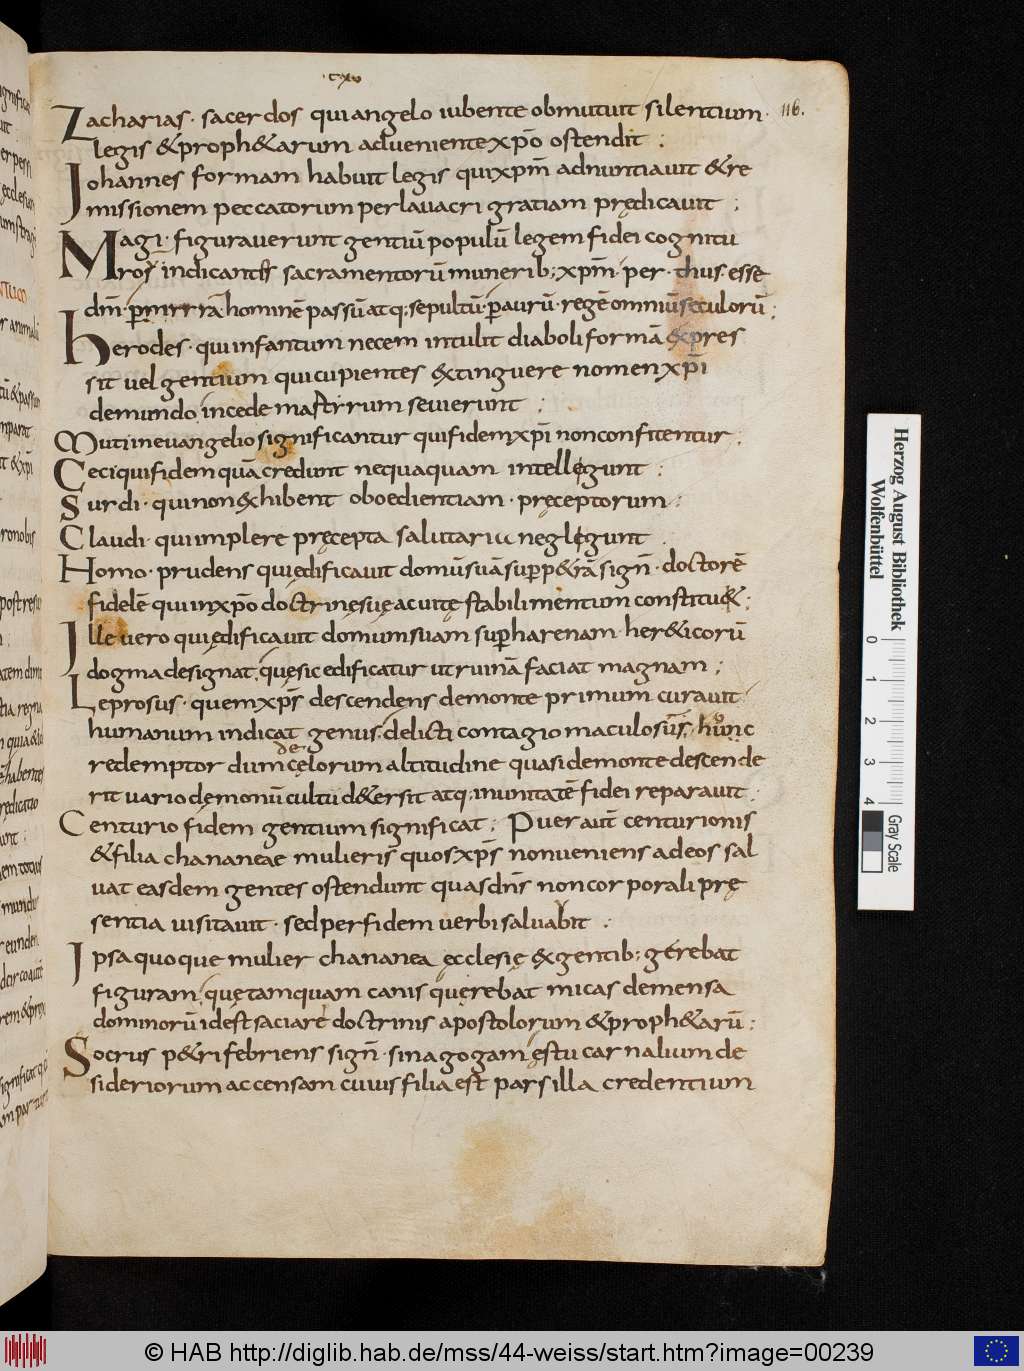 ·cxvi·
Zacharias · sacerdos qui angelo iubente obmutuit silentium · 116.
legis & proph&arum adveniente xp̄o ostendit ;
Iohannes formam habuit legis qui xpm̄ adnuntiavit & re
missionem peccatorum per lavacri gratiam prędicavit ;
Magi · figuraverunt gentiū populū legem fidei cognitu
ros indicantes sacramentorū munerib; xpm̄ · per · thus · esse
dm̄ · p̄ mirrā hominē passū atq; sepultū · p̄ aurū · regē omniū seculorū ;
herodes · qui infantum necem intulit diaboli formā exp̄res
sit vel gentium qui cupientes &tinguere nomen xp̄i
de mundo in cede martirum sevierunt ;
Muti in euangelio significantur qui fidem xp̄i non confitentur ;
Ceci qui fidem quā credunt nequaquam intellegunt ;
Surdi · qui non &hibent oboedientiam · pręceptorum ;
Claudi · qui implere pręcepta salutaria neglegunt
Homo · prudens qui ędificavit domū suā sup p&rā sign̄ · doctorē
fidelē qui in xp̄o doctrinę suę ac vitę stabilimentum constitu& ;
Ille vero qui ędificavit domum suam sup harenam · her&icorū
dogma designat, quę sic edificatur ut ruinā faciat magnam ;
Leprosus · quem xp̄s descendens de monte primum curavit
humanum indicat genus delicti contagio maculosū, hunc
redemptor dum de cęlorum altitudine quasi de monte descende
rit vario dęmonū cultu d&ersit atq; inunitatē fidei reparavit ;
Centurio fidem gentium significat ; Puer aut̄ centurionis
& filia chananeae mulieris quos xp̄s non veniens ad eos sal
vat easdem gentes ostendunt quas dn̄s non corporali prę
sentia visitavit · sed per fidem verbi salvabit ;
Ipsa quoque mulier chananea ęcclesię & gentib; gerebat
figuram, quę tamquam canis quęrebat micas de mensa
dominorū id est saciare doctrinis apostolorum & proph&arū ;
Socrus p&ri febriens sign̄ · sinagogam ęstu carnalium de
sideriorum accensam cuius filia est pars illa credentium
Herzog August Bibliothek
Wolfenbüttel
0 1 2 3 4
Gray Scale
© HAB http://diglib.hab.de/mss/44-weiss/start.htm?image=00239